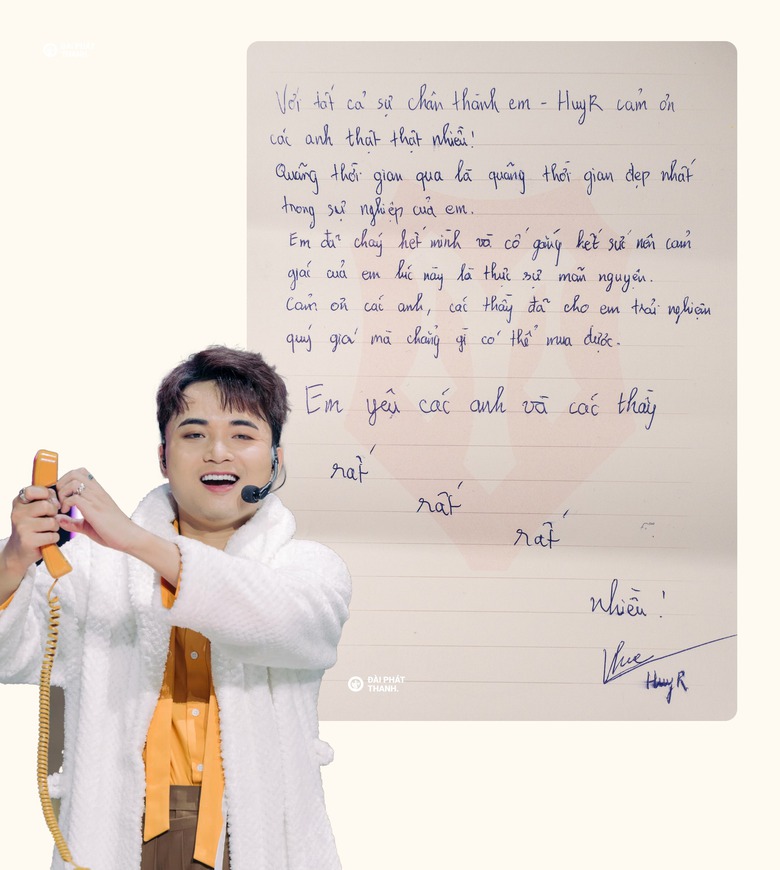 Với tất cả sự chân thành em - HuyR cảm ơn
các anh thật thật nhiều!
Quãng thời gian qua là quãng thời gian đẹp nhất
trong sự nghiệp của em.
Em đã cháy hết mình và cố gắng hết sức nên cảm
giác của em lúc này là thực sự mãn nguyện.
Cảm ơn các anh, các thầy đã cho em trải nghiệm
quý giá mà chẳng gì có thể mua được.
Em yêu các anh và các thầy
rất
rất
rất
nhiều!
HuyR
ĐÀI PHÁT
THANH.